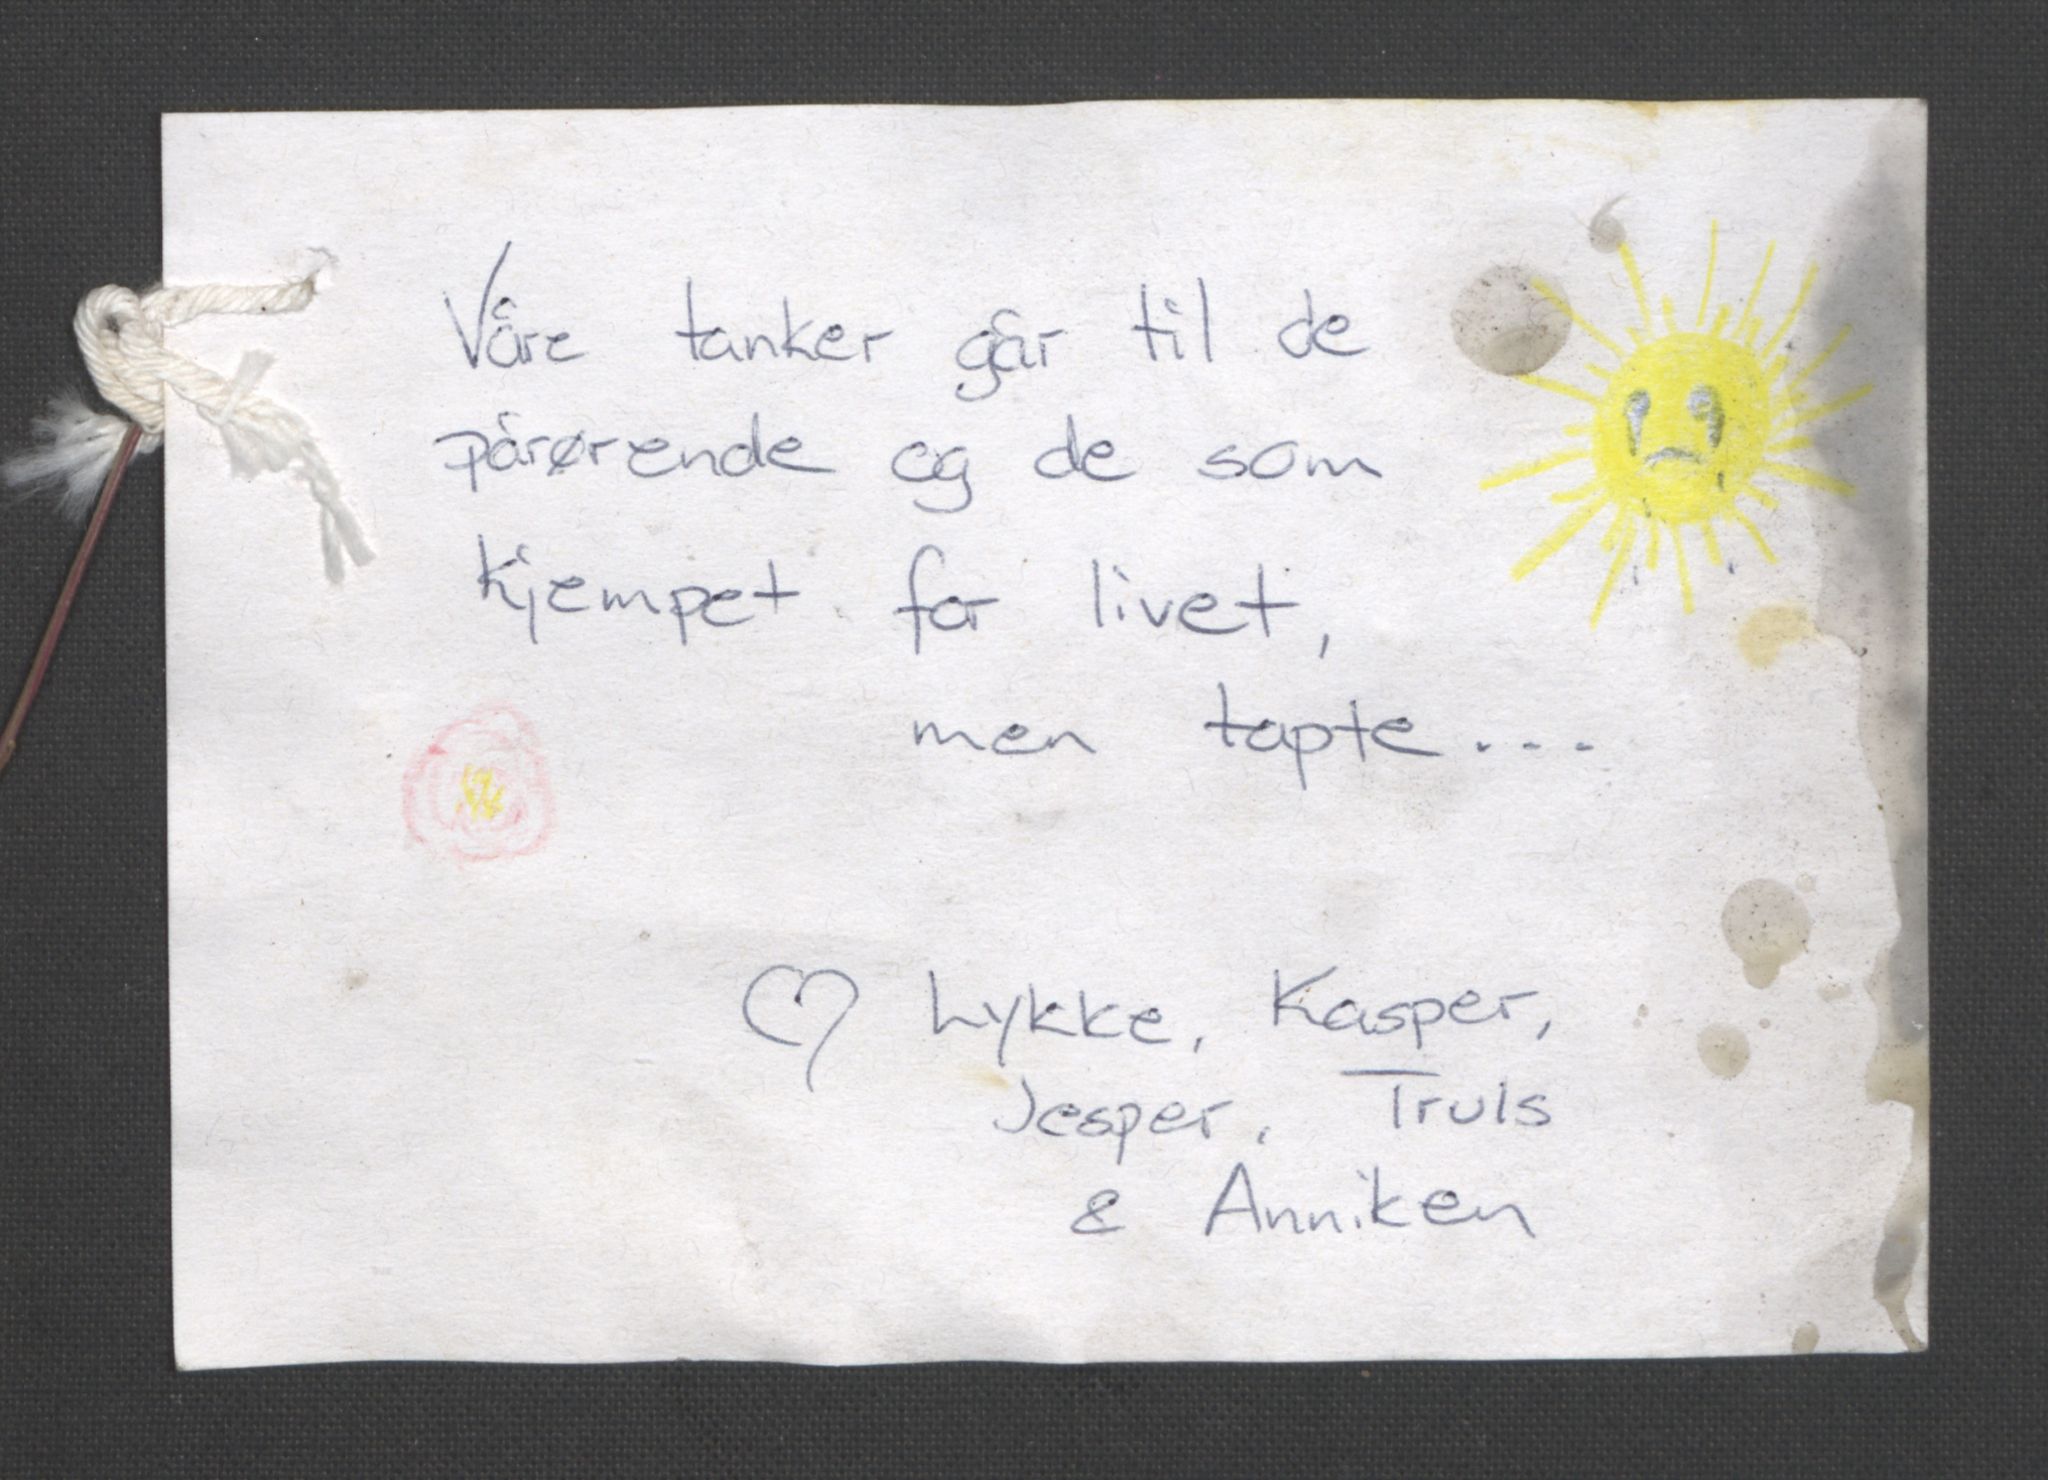 Våre tanker går til de
pårørende og de som
kjempet for livet,
men tapte....
♡ Lykke, Kasper,
Jesper, Truls
& Anniken